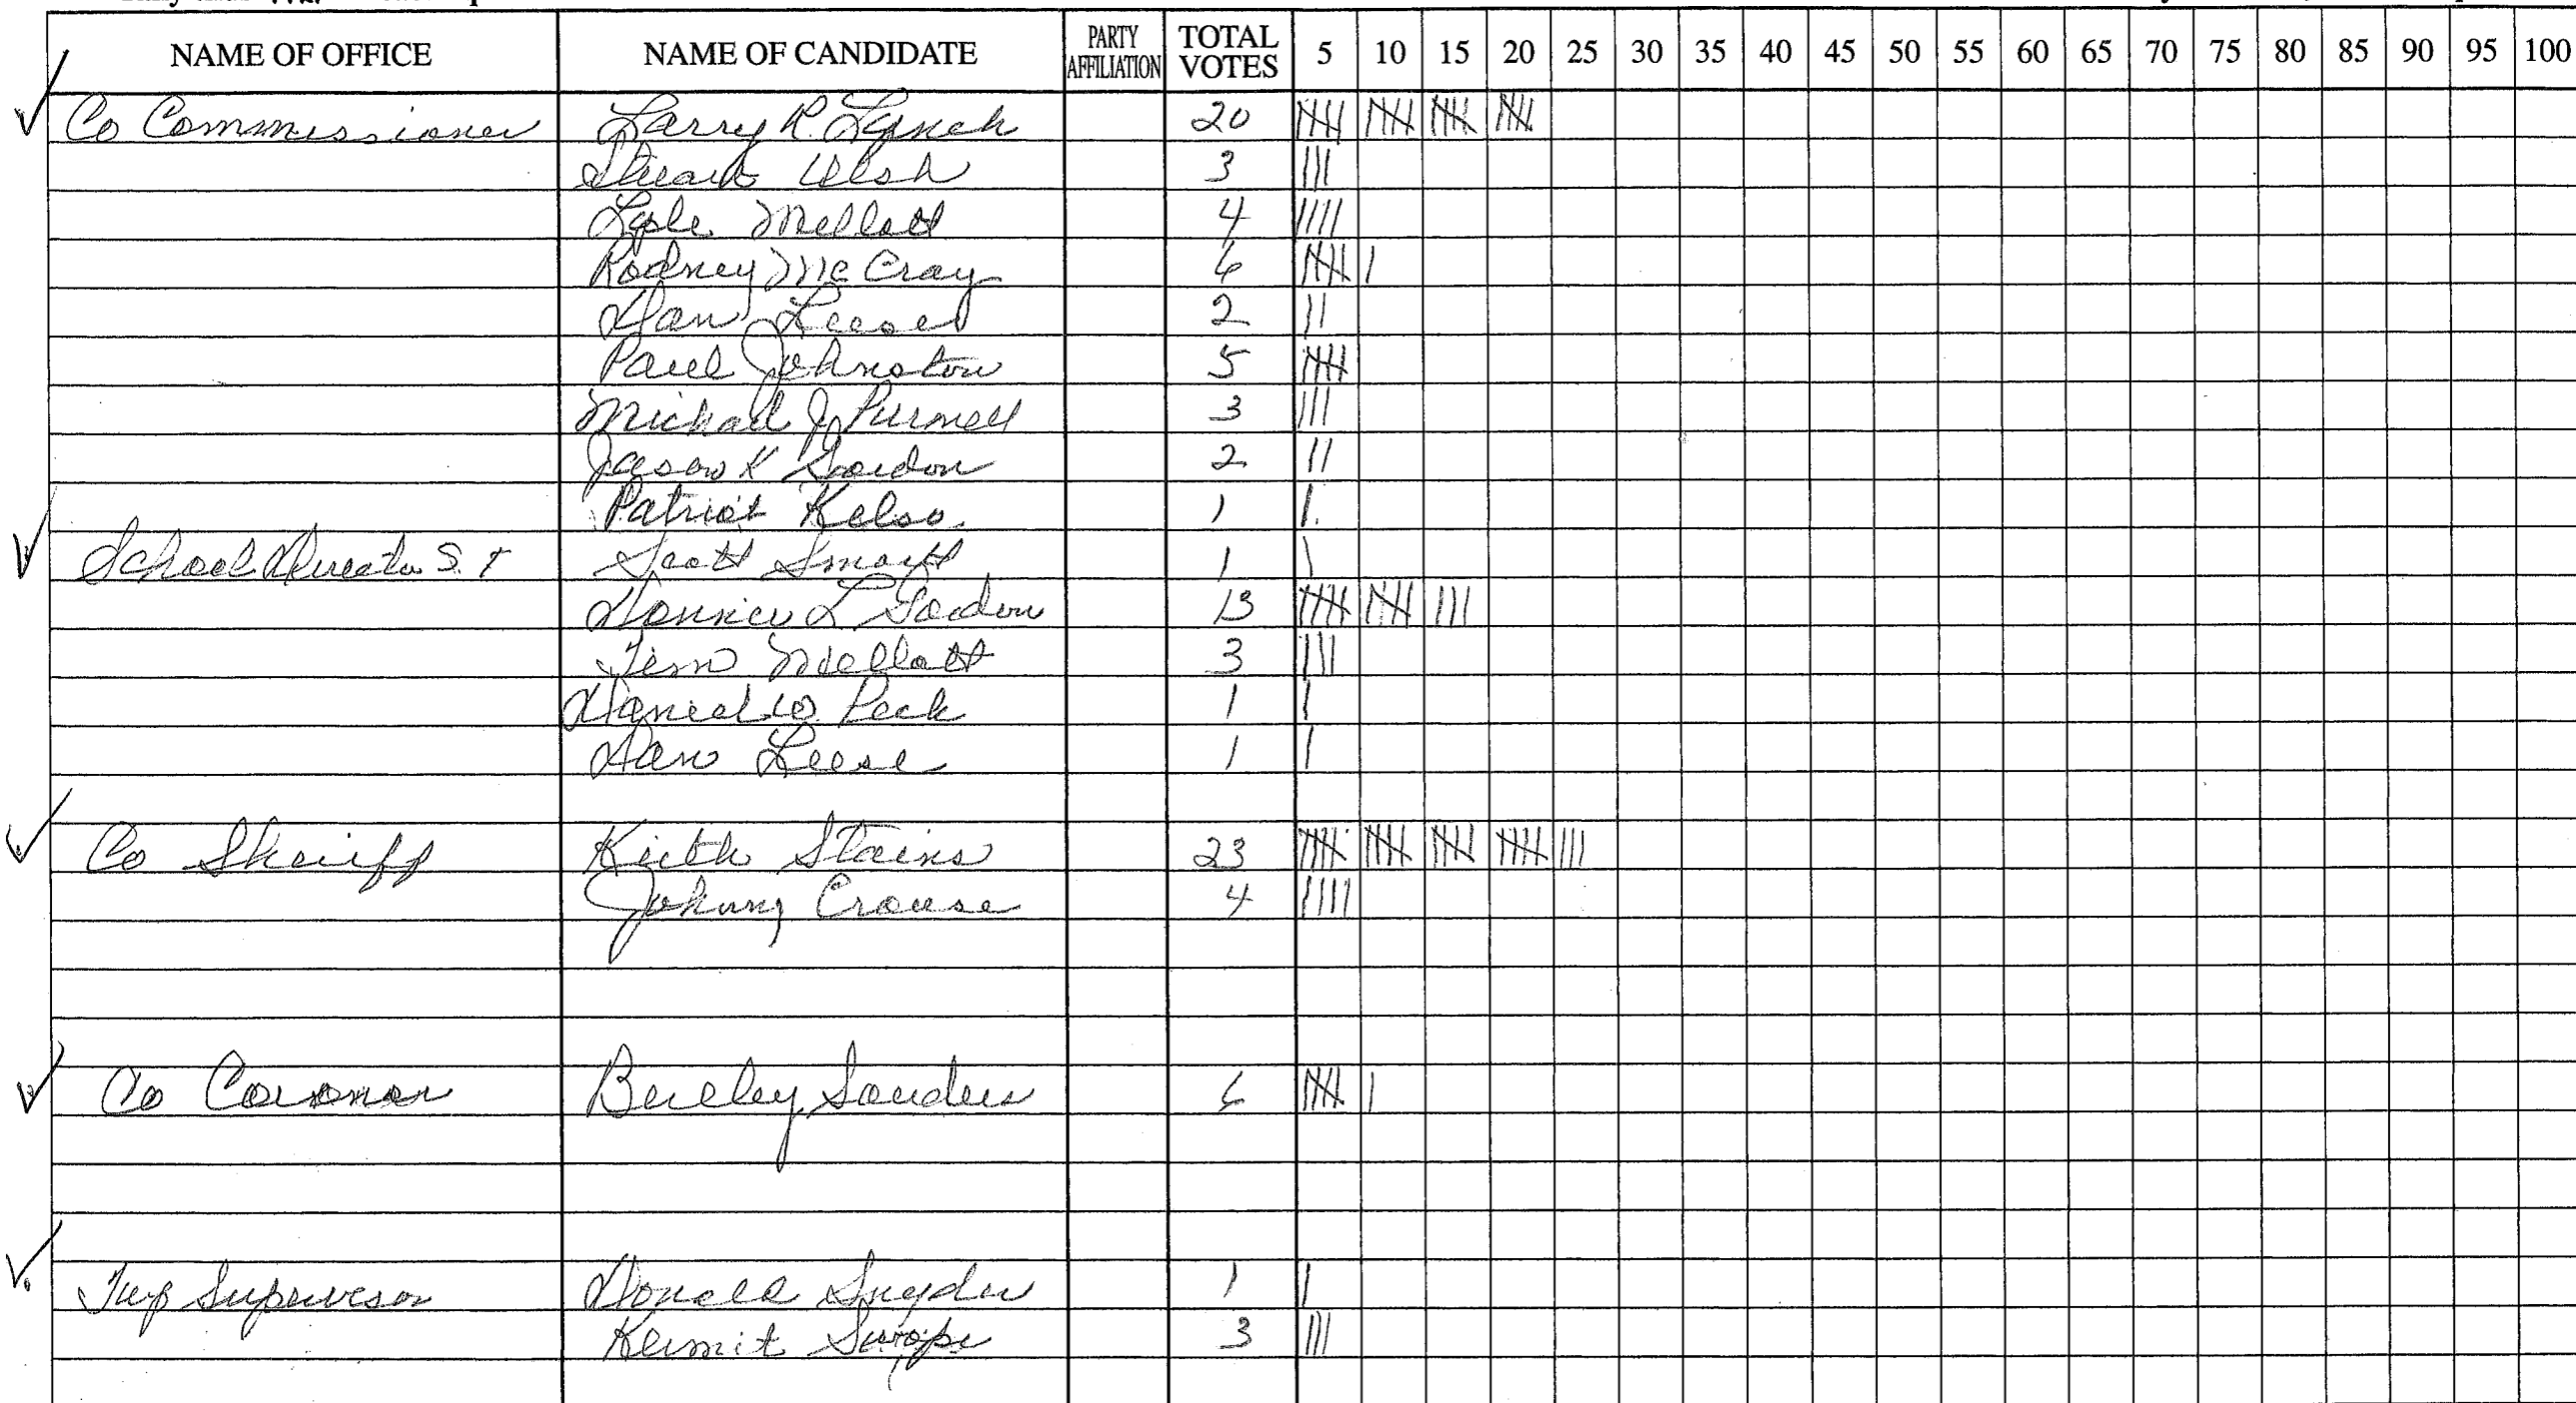 NAME OF OFFICE NAME OF CANDIDATE PARTY AFFILIATION TOTAL VOTES 5 10 15 20 25 30 35 40 45 50 55 60 65 70 75 80 85 90 95 100
Co Commissioner Larry R. Lynch 20
Ulsh 3
Lyle Mellott 4
Rodney McCray 6
Dan Leese 2
Paul Johnston 5
Michael J. Purnell 3
Jason K Gordon 2
Patriot Kelso 1
School Director Scott Smart 1
L Gordon 13
Tim Mellott 3
Daniel W. Peck 1
Dan Leese 1
Co Sheriff Keith Stains 23
Johnny Crouse 4
Co Coroner Souders 6
Twp Supervisor Donald Snyder 1
Kermit Swope 3